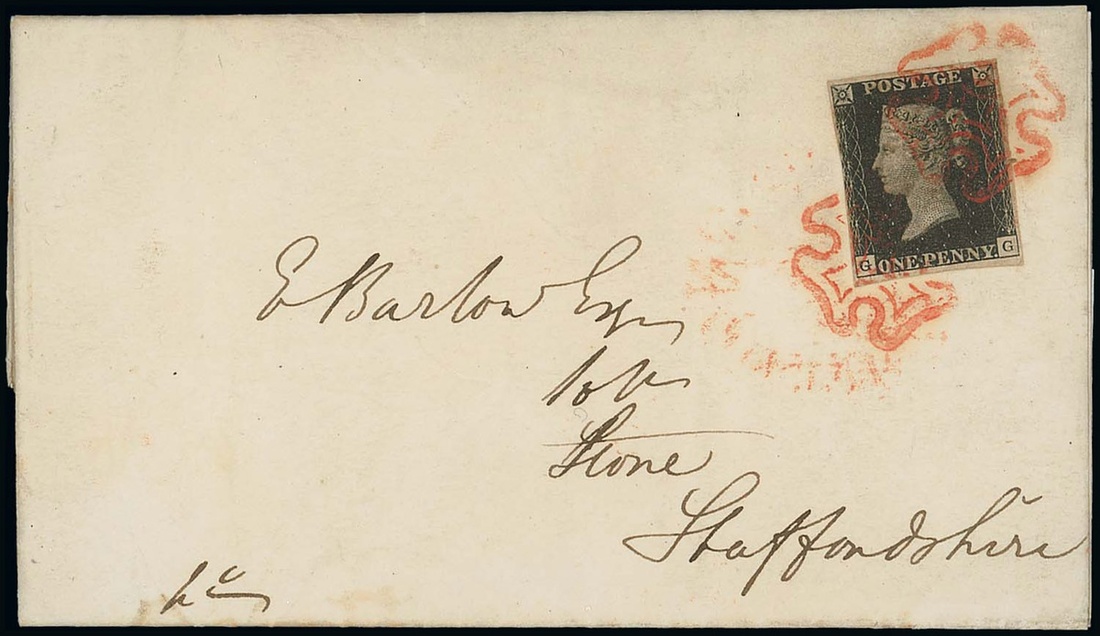 POSTAGE
G ONE PENNY. G
E Barlow Esq
Stone
Staffordshire